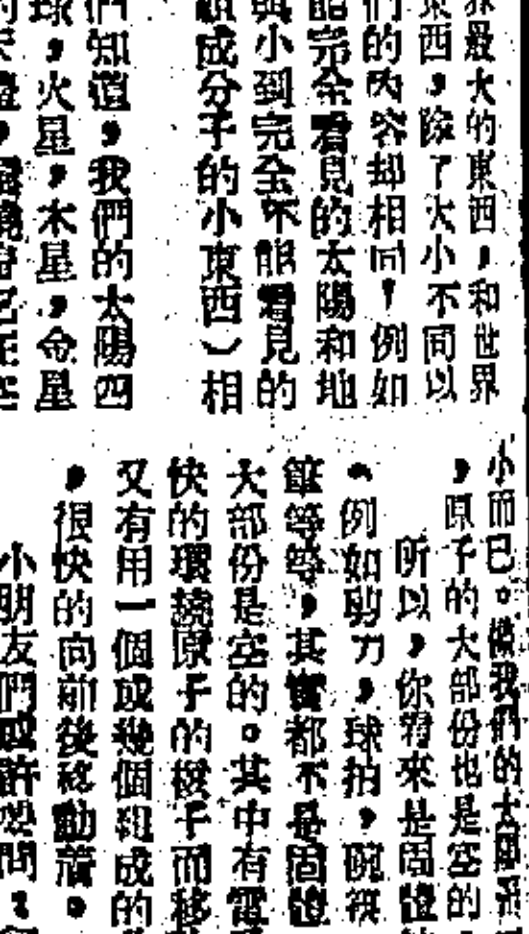 界最大的東西，和世界
東西，除了大小不同以
們的內容却相同，例如
能完全看見的太陽和地
與小到完全不能看見的
組成分子的小東西）相
們知道，我們的太陽四
球，火星，木星，金星
小而已。像我們的太陽系
，原子的大部份也是空的
所以，你看來是固體
（例如剪刀，球拍，碗筷
筆等等，其實都不是固體
大部份是空的。其中有電
快的環繞原子的核子而移
又有用一個或幾個組成的
，很快的向前後移動着。
小朋友們或許想問：